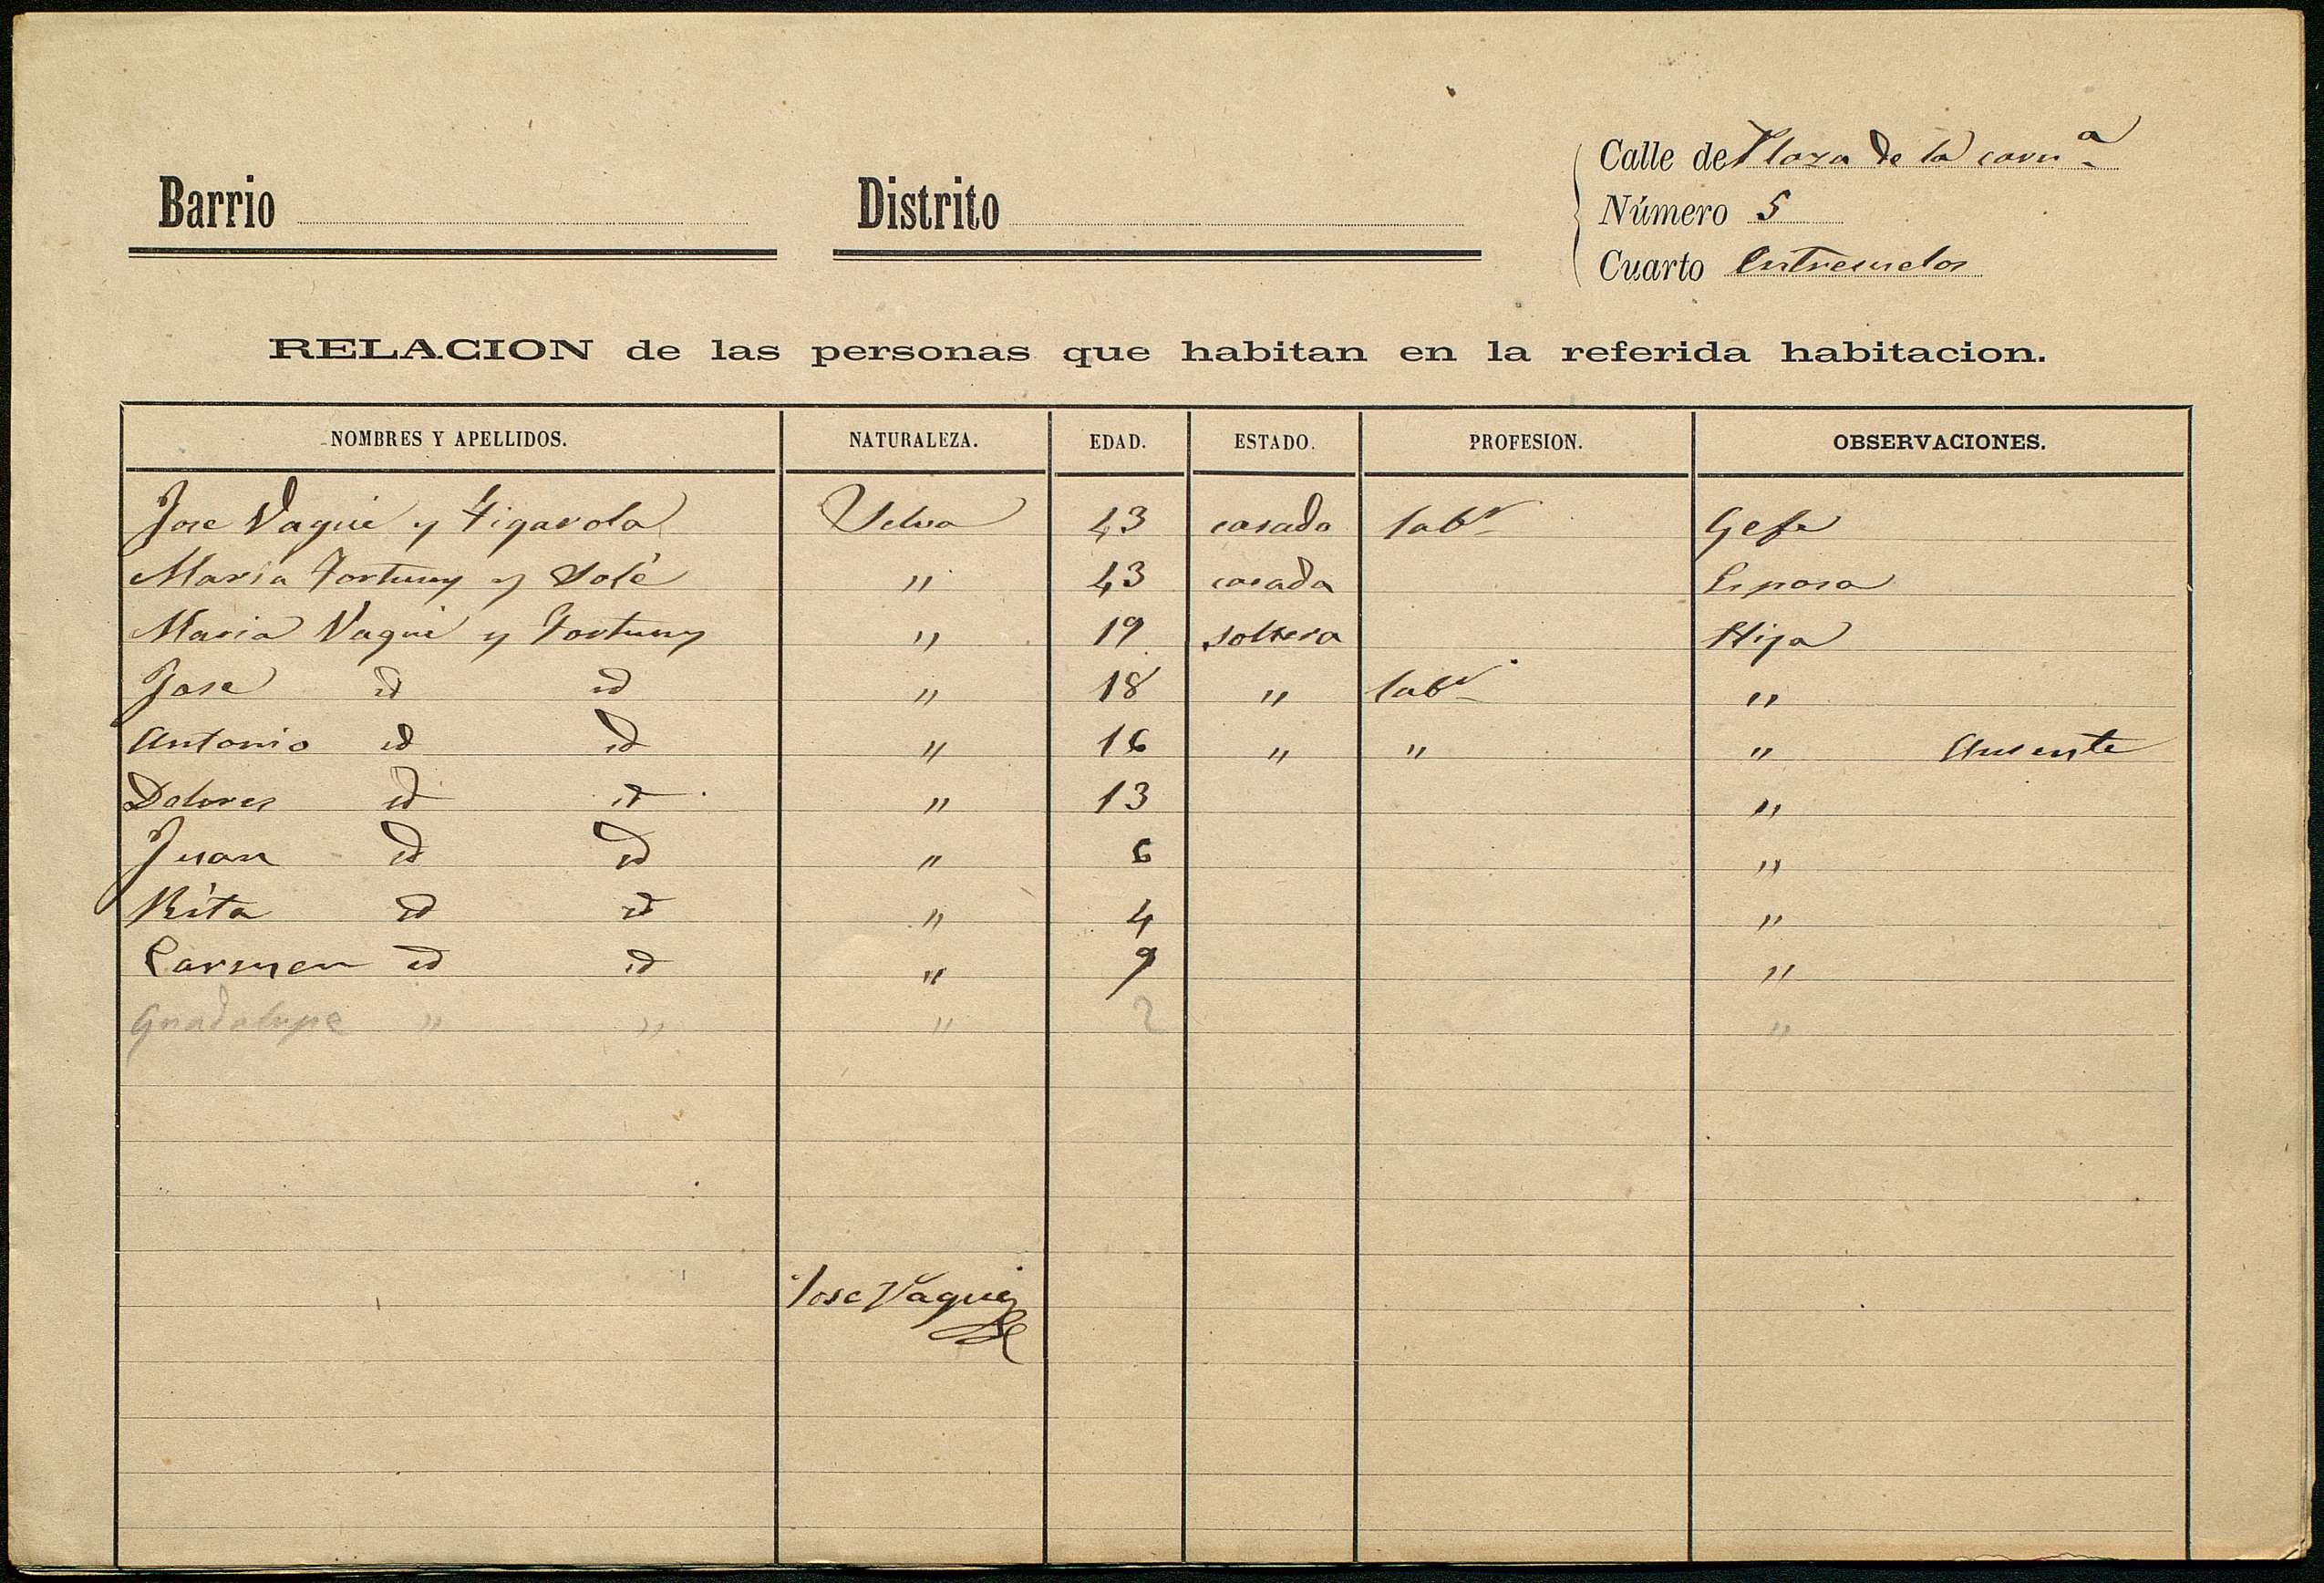 Calle de Plaza de la carn.ª
Barrio Distrito Número 5
Cuarto Entresuelos
RELACION de las personas que habitan en la referida habitacion.
NOMBRES Y APELLIDOS. NATURALEZA. EDAD. ESTADO. PROFESION. OBSERVACIONES.
Jose Vaqué y Figarola Selva 43 casado lab.r Gefe
Maria Fortuny y Solé " 43 casada Esposa
Maria Vaqué y Fortuny " 19 soltera Hija
Jose id id " 18 " lab.r "
Antonio id id " 16 " " " Ausente
Dolores id id " 13 "
Juan id id " 6 "
Rita id id " 4 "
Carmen id id " 9 "
Guadalupe " " " 2 "
Jose Vaqué